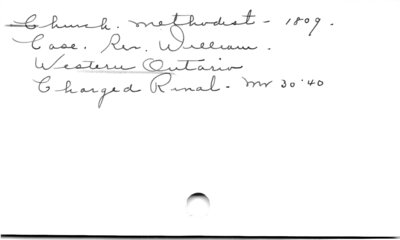 Church. Methodist - 1809.
Case. Rev. William.
Western Ontario
Charged Rinal - Mr 30'40